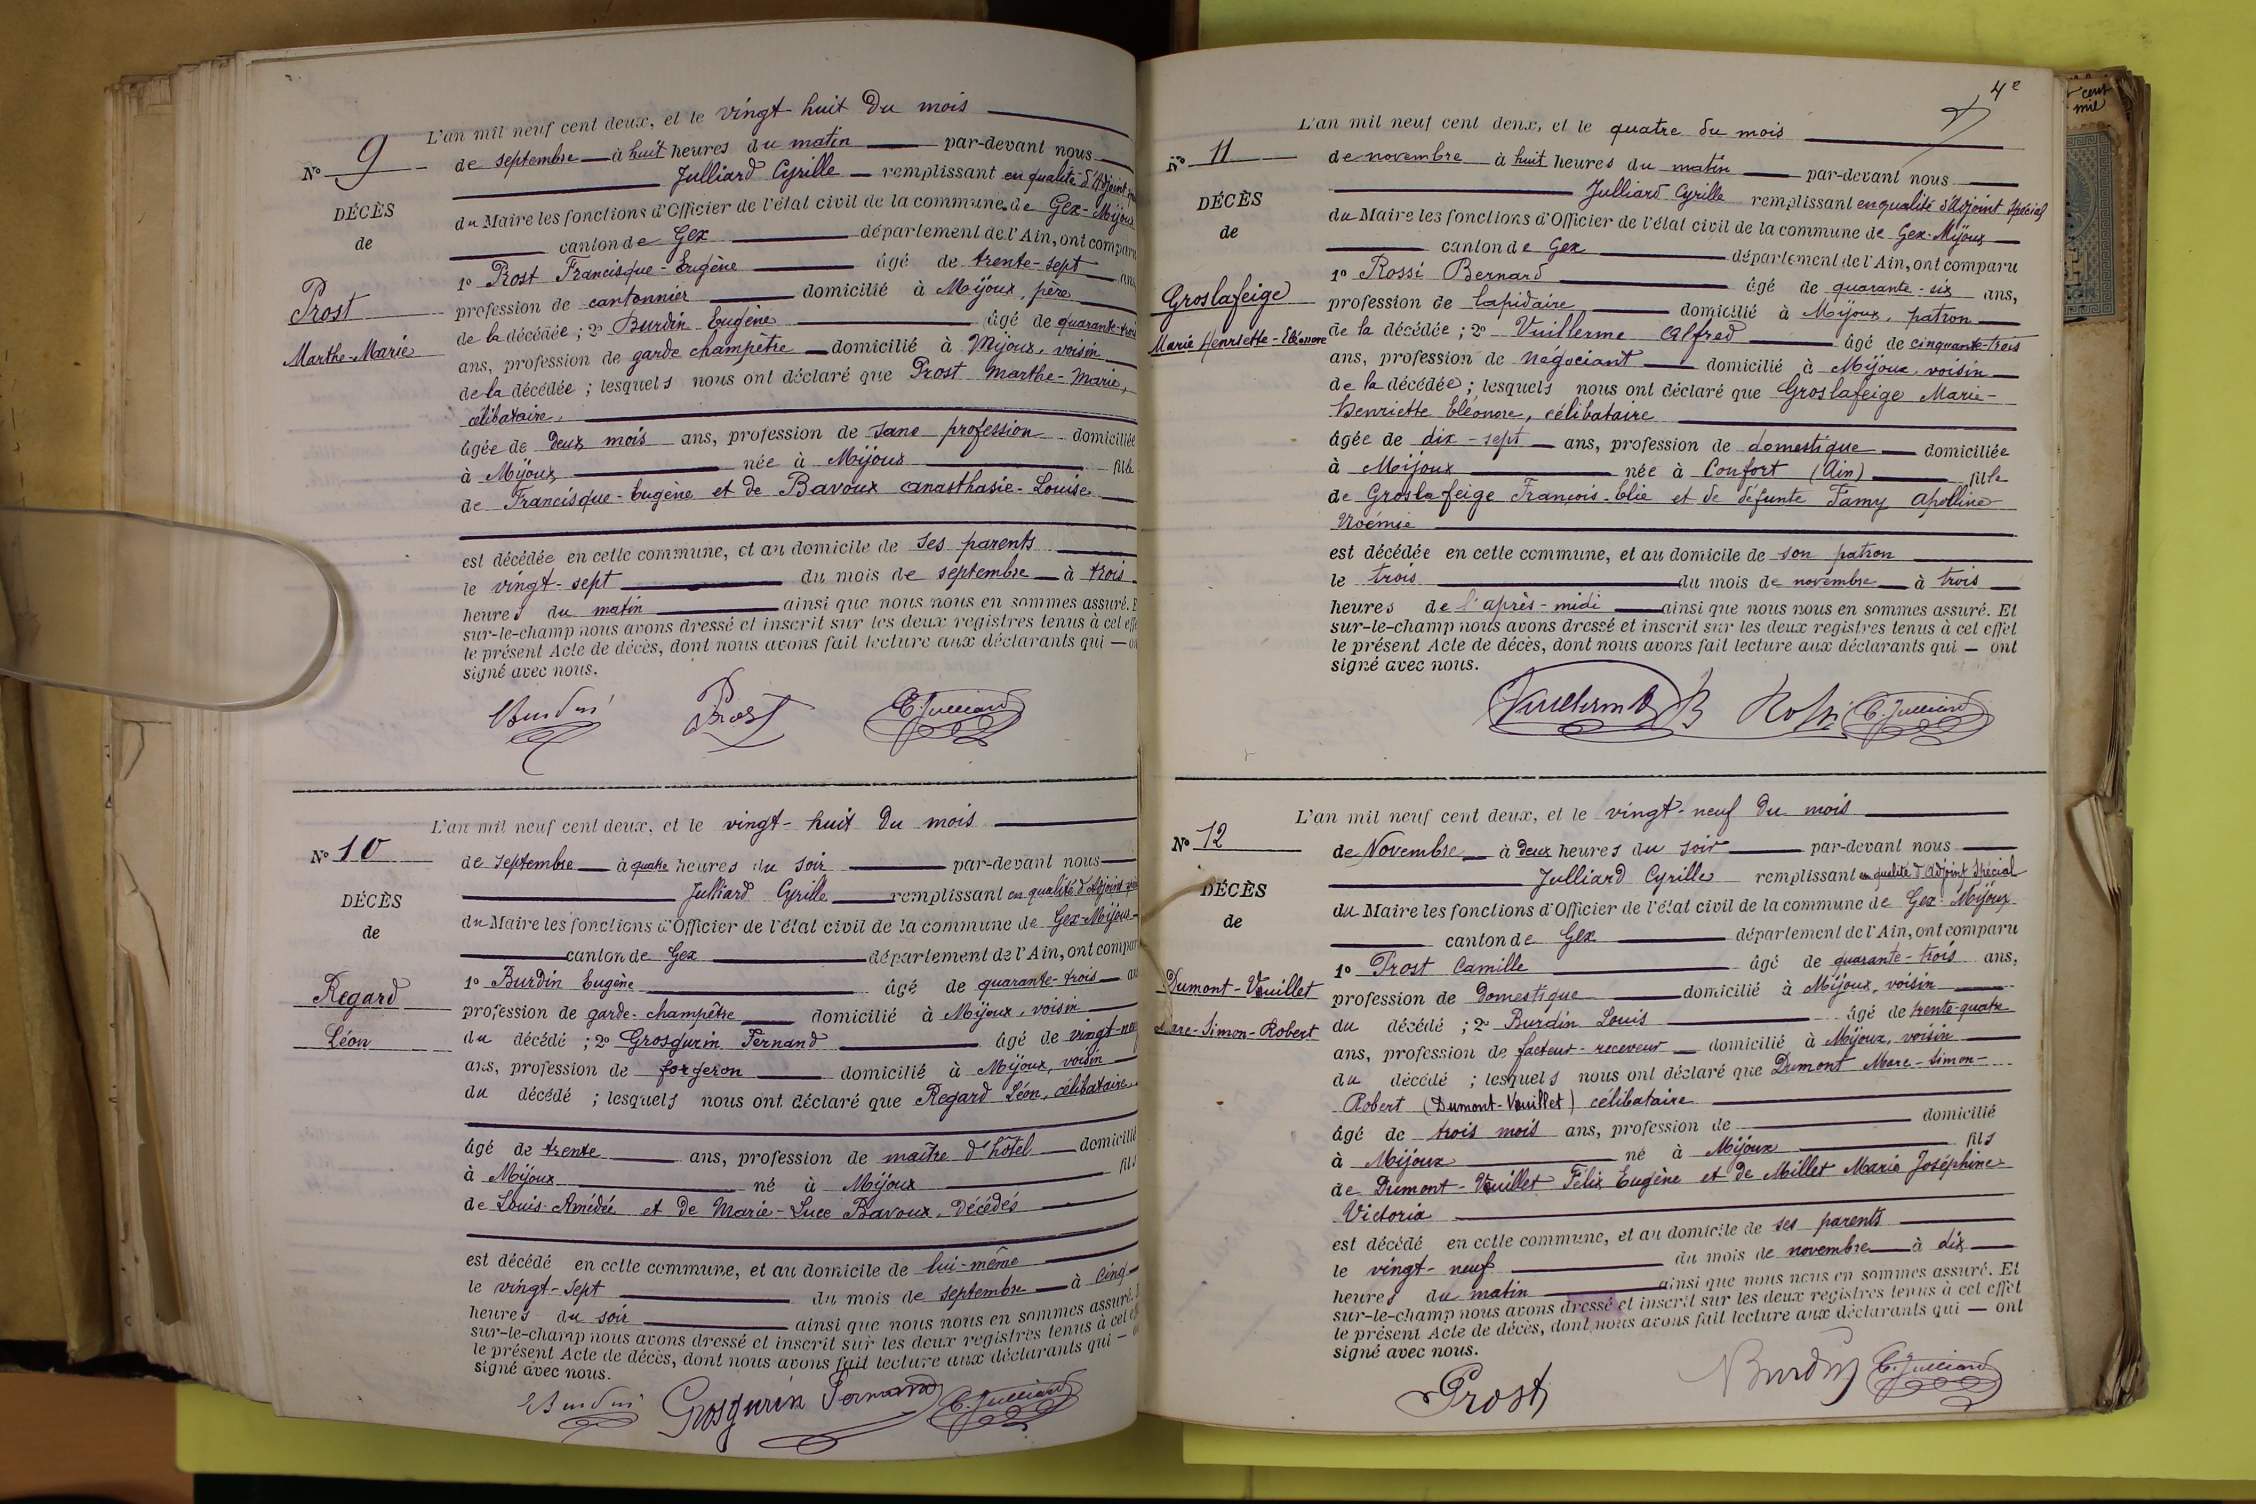 L'an mil neuf cent deux, et le vingt-huit du mois
No 9
de septembre à huit heures du matin par-devant nous
Julliard Cyrille remplissant en qualité d'Adjoint
DÉCÈS
du Maire les fonctions d'Officier de l'état civil de la commune de Gex-Mijoux
de
canton de Gex département de l'Ain, ont comparu
1o Prost Francisque-Eugène âgé de trente-sept ans,
Prost
profession de cantonnier domicilié à Mijoux, père
de la décédée ; 2o Burdin Eugène âgé de quarante-trois
Marthe-Marie
ans, profession de garde champêtre domicilié à Mijoux, voisin
de la décédée ; lesquels nous ont déclaré que Prost Marthe-Marie,
célibataire,
âgée de deux mois ans, profession de sans profession domiciliée
à Mijoux née à Mijoux fille
de Francisque-Eugène et de Bavoux Anasthasie-Louise
est décédée en cette commune, et au domicile de ses parents
le vingt-sept du mois de septembre à trois
heures du matin ainsi que nous nous en sommes assuré. E
sur-le-champ nous avons dressé et inscrit sur les deux registres tenus à cet effe
le présent Acte de décès, dont nous avons fait lecture aux déclarants qui — on
signé avec nous.
Burdin Prost C. Julliard
L'an mil neuf cent deux, et le vingt-huit du mois
No 10
de septembre à quatre heures du soir par-devant nous
DÉCÈS
Julliard Cyrille remplissant en qualité d'Adjoint
de
du Maire les fonctions d'Officier de l'état civil de la commune de Gex-Mijoux
canton de Gex département de l'Ain, ont compar
Regard
1o Burdin Eugène âgé de quarante-trois an
profession de garde-champêtre domicilié à Mijoux, voisin
Léon
du décédé ; 2o Grosgurin Fernand âgé de vingt-
ans, profession de forgeron domicilié à Mijoux, voisin
du décédé ; lesquels nous ont déclaré que Regard Léon, célibataire
âgé de trente ans, profession de maître d'hôtel domicilié
à Mijoux né à Mijoux fils
de Louis-Amédée et de Marie-Luce Bavoux, décédés
est décédé en cette commune, et au domicile de lui-même
le vingt-sept du mois de septembre à cinq
heures du soir ainsi que nous nous en sommes assuré.
sur-le-champ nous avons dressé et inscrit sur les deux registres tenus à cet e
le présent Acte de décès, dont nous avons fait lecture aux déclarants qui —
signé avec nous.
Burdin Grosgurin Fernand C. Julliard
4e
L'an mil neuf cent deux, et le quatre du mois
No 11
de novembre à huit heures du matin par-devant nous
DÉCÈS
Julliard Cyrille remplissant en qualité d'Adjoint Spécial
de
du Maire les fonctions d'Officier de l'état civil de la commune de Gex-Mijoux
canton de Gex département de l'Ain, ont comparu
1o Rossi Bernard âgé de quarante-six ans,
Groslafeige
profession de lapidaire domicilié à Mijoux, patron
Marie Henriette-Eléonore
de la décédée ; 2o Vuillerme Alfred âgé de cinquante-trois
ans, profession de négociant domicilié à Mijoux, voisin
de la décédée ; lesquels nous ont déclaré que Groslafeige Marie-
Henriette Eléonore, célibataire
âgée de dix-sept ans, profession de domestique domiciliée
à Mijoux née à Confort (Ain) fille
de Groslafeige François-Elie et de défunte Famy Apolline
Noémie
est décédée en cette commune, et au domicile de son patron
le trois du mois de novembre à trois
heures de l'après-midi ainsi que nous nous en sommes assuré. Et
sur-le-champ nous avons dressé et inscrit sur les deux registres tenus à cet effet
le présent Acte de décès, dont nous avons fait lecture aux déclarants qui — ont
signé avec nous.
Vuillerme B Rossi C. Julliard
L'an mil neuf cent deux, et le vingt-neuf du mois
No 12
de Novembre à deux heures du soir par-devant nous
DÉCÈS
Julliard Cyrille remplissant en qualité d'Adjoint Spécial
de
du Maire les fonctions d'Officier de l'état civil de la commune de Gex-Mijoux
canton de Gex département de l'Ain, ont comparu
1o Prost Camille âgé de quarante-trois ans,
Dumont-Vuillet
profession de Domestique domicilié à Mijoux, voisin
Marc-Simon-Robert
du décédé ; 2o Burdin Louis âgé de trente-quatre
ans, profession de facteur-receveur domicilié à Mijoux, voisin
du décédé ; lesquels nous ont déclaré que Dumont Marc-Simon-
Robert (Dumont-Vuillet) célibataire
âgé de trois mois ans, profession de domicilié
à Mijoux né à Mijoux fils
de Dumont-Vuillet Félix Eugène et de Millet Marie Joséphine
Victoria
est décédé en cette commune, et au domicile de ses parents
le vingt-neuf du mois de novembre à dix
heures du matin ainsi que nous nous en sommes assuré. Et
sur-le-champ nous avons dressé et inscrit sur les deux registres tenus à cet effet
le présent Acte de décès, dont nous avons fait lecture aux déclarants qui — ont
signé avec nous.
Prost Burdin C. Julliard
cent
mil